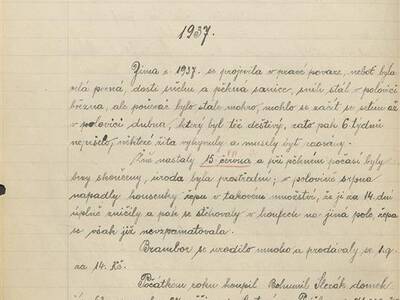 1937.
Zima r. 1937. se projevila v pravé povaze, neboť byla
stá pevná, dosti sněhu a pěkná sanice, sníh stál v polovici
března, ale poněvač bylo stále mokro, mohlo se začít se setím až
v polovici dubna, který byl též deštivý, zato pak 6 týdnů
nepršelo, některé žita vyhynuly a musely být zaorány.
Žně nastaly 15 června a při pěkném počasí byly
brzy skončeny, úroda byla prostřední; v polovině srpna
napadly housenky řepu v takovém množství, že ji za 14 dní
úplně zničily a pak se stěhovaly v houfech na jiná pole, řepa
se však již nevzpamatovala.
Brambor se urodilo mnoho a prodávaly se 1.q.
za 14. Kč.
Počátkem roku koupil Bohumil Slezák domek